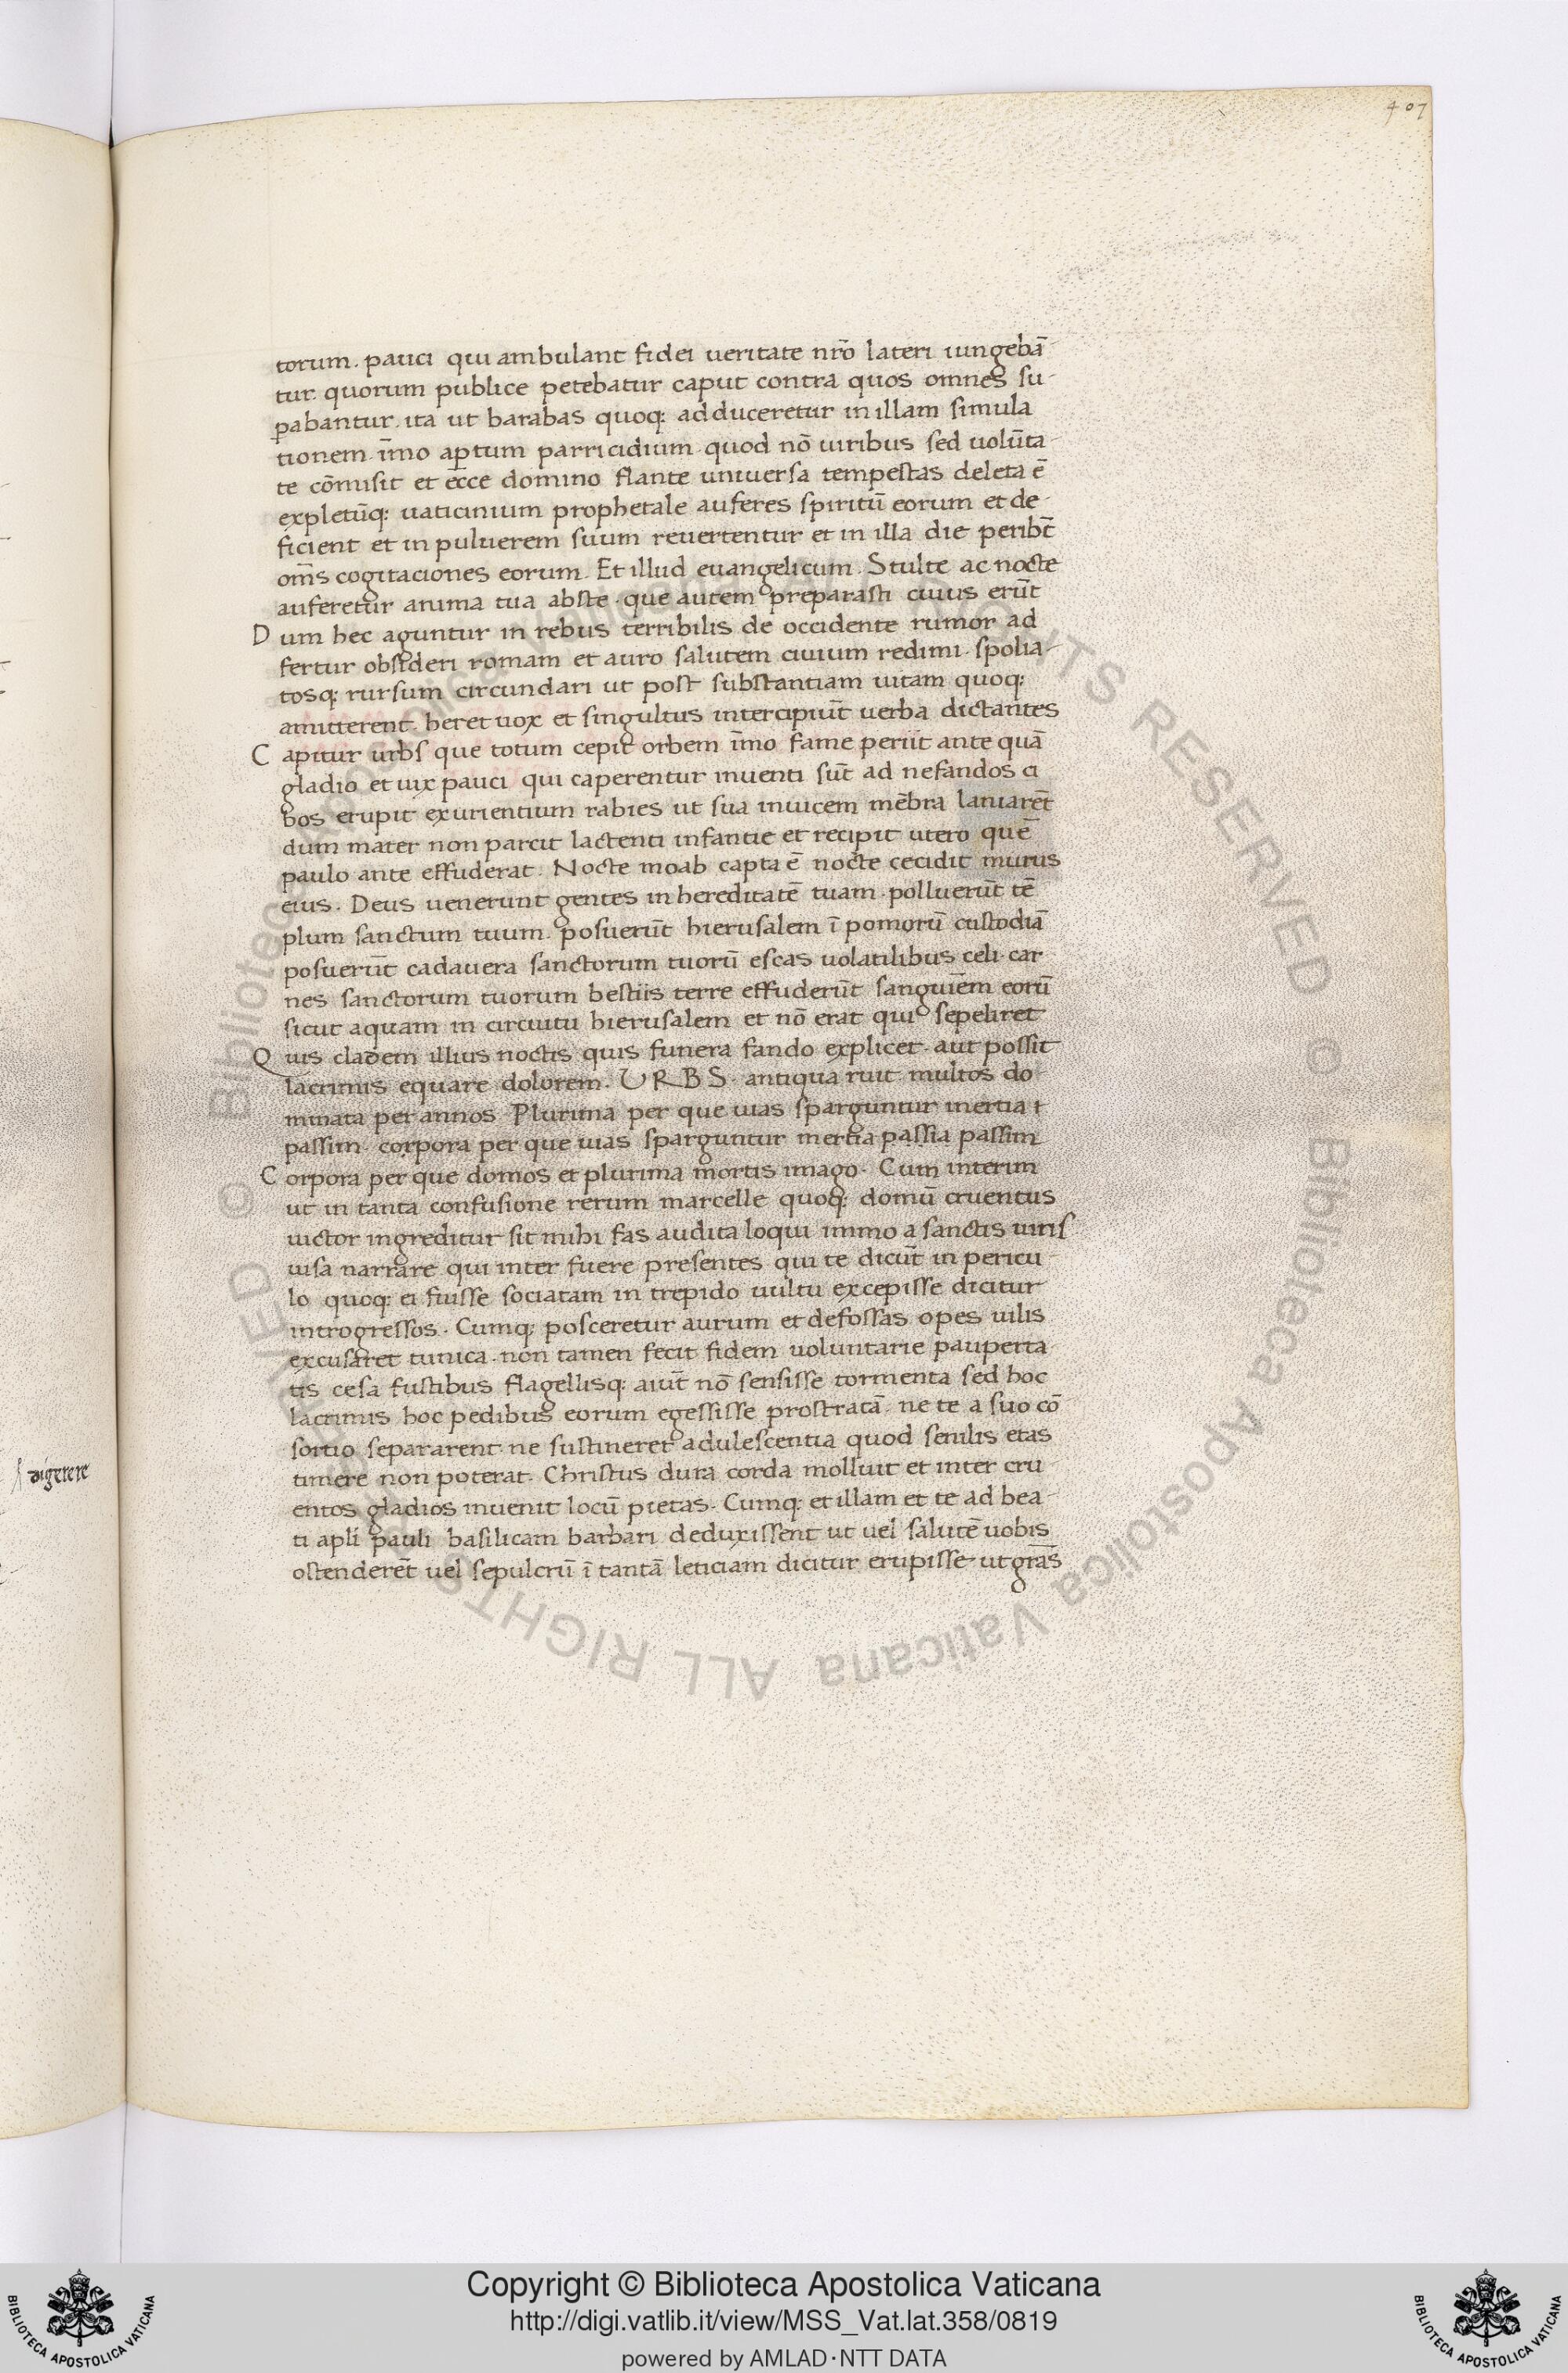 407
torum. pauci qui ambulant fidei ueritate nr̄o lateri iungebā-
tur. quorum publice petebatur caput contra quos omnes su-
ꝑabantur. ita ut barabas quoq; adduceretur in illam simula
tionem. īmo aꝑtum parricidium. quod nō uiribus sed uolūta-
te cōmisit et ecce domino flante uniuersa tempestas deleta ē
expletūq; uaticinium prophetale auferes spiritū eorum et de-
ficient et in puluerem suum reuertentur et in illa die peribt̄
om̄s cogitaciones eorum. Et illud euangelicum. Stulte ac nocte
auferetur anima tua abste. que autem preparasti cuius erūt
Dum hec aguntur in rebus terribilis de occidente rumor ad
fertur obsideri romam et auro salutem ciuium redimi. spolia-
tosq; rursum circundari ut post substantiam uitam quoq;
amitterent. heret uox et singultus intercipiūt uerba dictantes
Capitur urbs que totum cepit orbem īmo fame periit ante quā
gladio et uix pauci qui caperentur inuenti sūt ad nefandos ci
bos erupit exurientium rabies ut sua inuicem mēbra laniarēt
dum mater non parcit lactenti infantie et recipit utero quē
paulo ante effuderat. Nocte moab capta ē nocte cecidit murus
eius. Deus uenerunt gentes in hereditatē tuam. polluerūt tē
plum sanctum tuum. posuerūt hierusalem ī pomorū custodiā
posuerūt cadauera sanctorum tuorū escas uolatilibus celi. car
nes sanctorum tuorum bestiis terre effuderūt sanguīem eorū
sicut aquam in circuitu hierusalem et nō erat qui sepeliret
Quis cladem illius noctis quis funera fando explicet. aut possit
lacrimis equare dolorem. URBS. antiqua ruit multos do
minata per annos. Plurima per que uias sparguntur inertia
passim. corpora per que uias sparguntur inertia passia passim
Corpora per que domos et plurima mortis imago. Cum interim
ut in tanta confusione rerum marcelle quoq; domū cruentus
uictor ingreditur sit mihi fas audita loqui immo a sanctis uiris
uisa narrare qui inter fuere presentes qui te dicūt in pericu-
lo quoq; ei fuisse sociatam in trepido uultu excepisse dicitur
introgressos. Cumq; posceretur aurum et defossas opes uilis
excusaret tunica. non tamen fecit fidem uoluntarie pauperta-
tis cesa fustibus flagellisq; aiūt nō sensisse tormenta sed hoc
lacrimis hoc pedibus eorum egessisse prostratā. ne te a suo cō
sortio separarent ne sustineret adulescentia quod senilis etas
timere non poterat. Christus dura corda molluit et inter cru-
entos gladios inuenit locū pietas. Cumq; et illam et te ad bea-
ti apl̄i pauli basilicam barbari deduxissent ut uel salutē uobis
ostenderēt uel sepulcrū ī tantā leticiam dicitur erupisse ut grās
digerere
© Biblioteca Apostolica Vaticana ALL RIGHTS RESERVED © Biblioteca Apostolica Vaticana ALL RIGHTS RESERVED
Copyright © Biblioteca Apostolica Vaticana
http://digi.vatlib.it/view/MSS_Vat.lat.358/0819
powered by AMLAD·NTT DATA
BIBLIOTECA APOSTOLICA VATICANA
BIBLIOTECA APOSTOLICA VATICANA